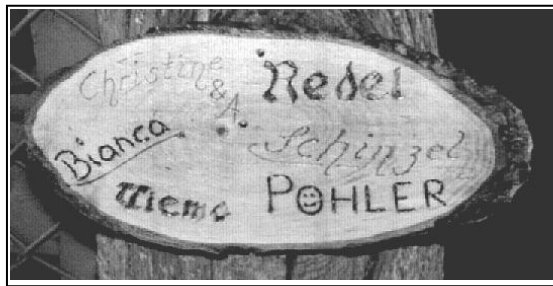 Christine
& A. Redel
Bianca Schinzel
POHLER